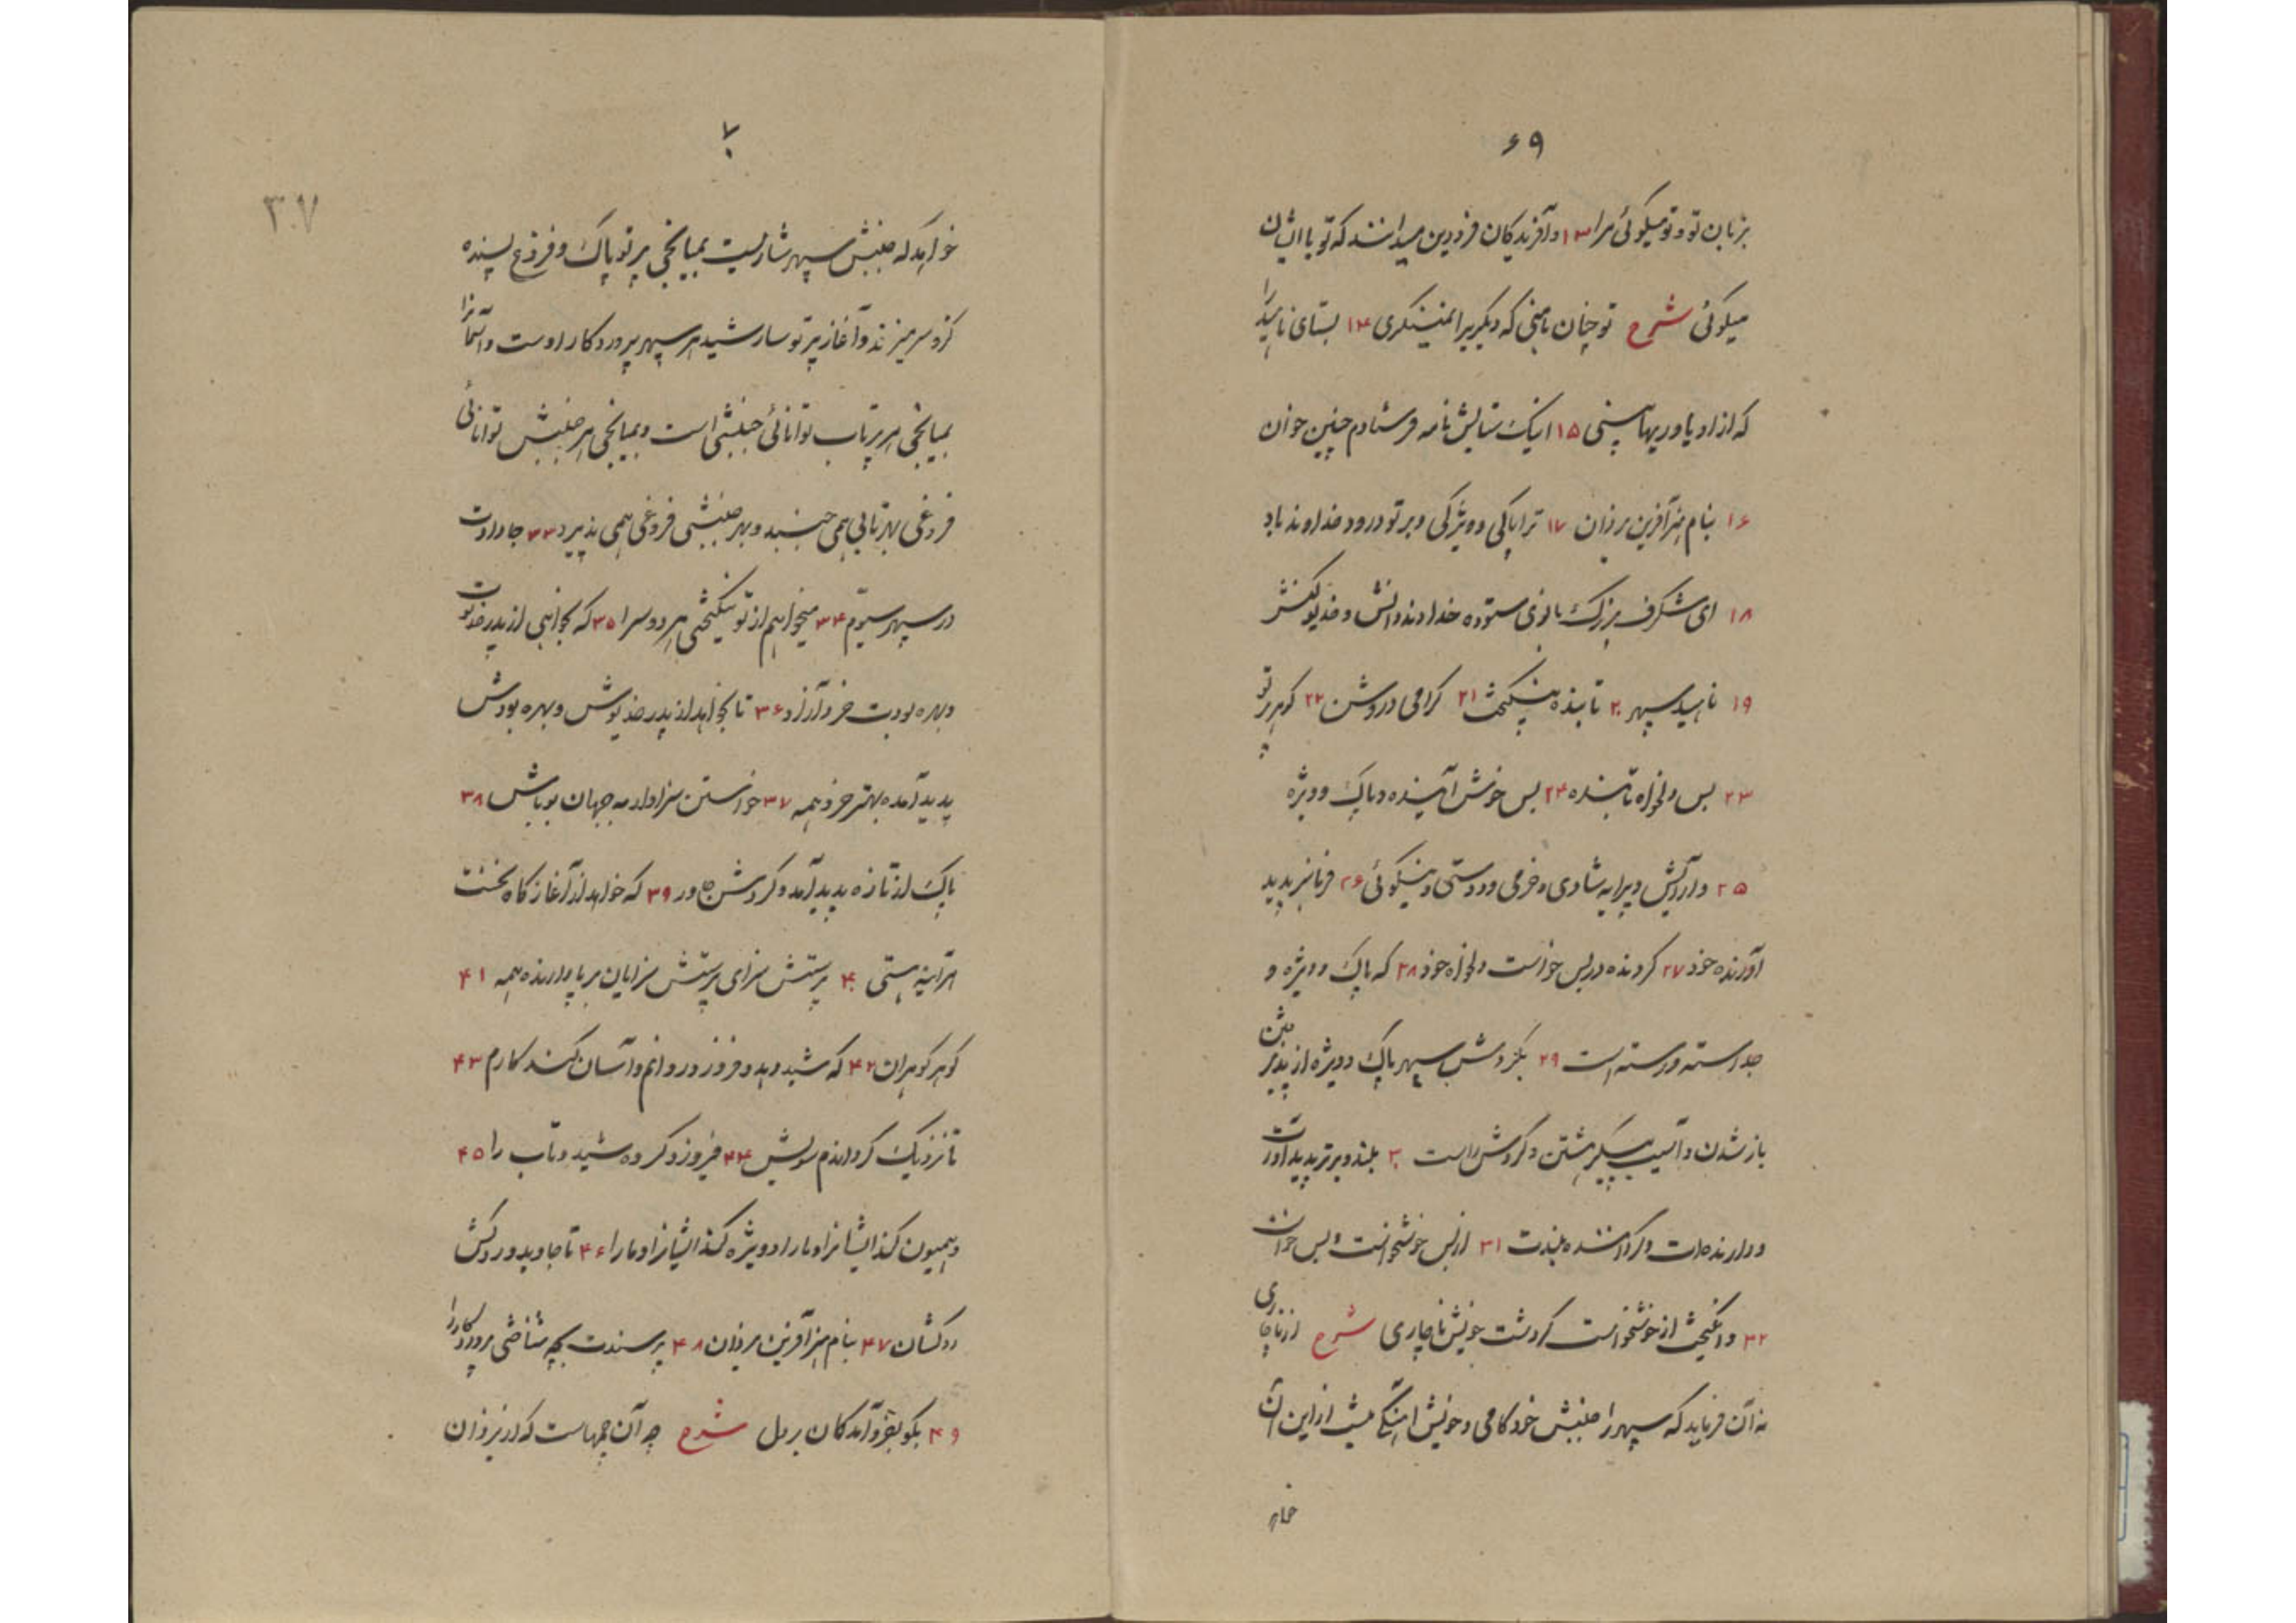 ۶۹
بزبان تو و تو میگوئی مرا ۱۳ و آفریدگان فرودین میدانند که تو با ایشان
میگوئی شرح تو چنان بامنی که دیگریرا نمینگری ۱۴ بستای ناهید را
که از او یاوریها بینی ۱۵ اینک ستایش نامه فرستادم چنین خوان
۱۶ بنام هنر آفرین یزدان ۱۷ ترا پاکی و ویژگی و بر تو درود خداوند باد
۱۸ ای شگرف بزرگ بانوی ستوده خداوند دانش و خدیو کنش
۱۹ ناهید سپهر ۲۰ تابنده نیکبخت ۲۱ گرامی و روشن ۲۲ گوهر پرتو
۲۳ بس دلخواه تابنده ۲۴ بس خوش آینده و پاک و ویژه
۲۵ و آرایش و پیرایه شادی و خرمی و دوستی و نیکوئی ۲۶ فرمانبر پدید
آورنده خود ۲۷ گردنده در بس خواست دلخواه خود ۲۸ که پاک و ویژه و
جدا رسته و رسته است ۲۹ بگردش سپهر پاک و ویژه از پذیرفتن
باز شدن و آسیب پیکر هشتن و گردش راست ۳۰ بلند و برتر پدید آورت
و دارنده‌ات و گرداننده بلندت ۳۱ از بس خوشخواست و بس خواست
۳۲ و انگیخت از خوشخواست گردشت خویش ناچاری شرح از ناچاری
نه آن فرماید که سپهر را جنبش خود کامی و خویش آهنگی نیست از این آن
خواهد
۷۰
۳۰۷
خواهد که جنبش سپهر شادیست بمیانجی پرتو پاک و فروغ پسنده
کزو سر میزند و آغاز پرتوسار شید هر سپهر پروردگار اوست و آسمانرا
بمیانجی هر پرتاب توانائی جنبشی است و بمیانجی هر جنبش توانائی
فروغی بهر تابی همی جنبد و بهر جنبشی فروغی همی پذیرد ۳۳ جا دادت
در سپهر سیوم ۳۴ میخواهم از تو نیکبختی هر دو سرا ۳۵ که بخواهی از پدر خدیوت
و بهره بودت خرد آزاد ۳۶ تا بخواهد از پدر خدیوش و بهره بودش
پدید آمده بهتر خرد همه ۳۷ خواستن سزاوار به جهان بوباش ۳۸
پاک از تازه پدید آمد و گردش ور ۳۹ که خواهد از آغازگاه نخست
هر آینه هستی ۴۰ پرستش سزای پرستش سزایان برپا دارنده همه ۴۱
گوهر گوهران ۴۲ که شید دهد و فروزد روانم و آسان کند کارم ۴۳
تا نزدیک گرداندم سویش ۴۴ فیروز و گروه شید و تاب را ۴۵
و همیون کند ایشانرا و ما را و ویژه کند ایشانرا و ما را ۴۶ تا جاوید و روکش
روکشان ۴۷ بنام هنر آفرین یزدان ۴۸ پرسندت بچه شناختی پروردگار را
۴۹ بگو بفرو آمدگان بر دل شرح چه آن چمهاست که از یزدان